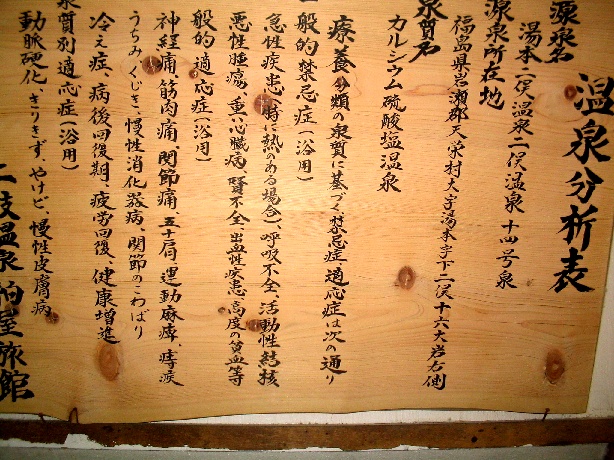 温泉分析表
源泉名
湯本二俣温泉二俣温泉十四号泉
源泉所在地
福島県岩瀬郡天栄村大字湯本字下二俣十六大岩右側
泉質名
カルシウム硫酸塩温泉
療養分類の泉質に基づく禁忌症、適応症は次の通り
一般的禁忌症(浴用)
急性疾患(特に熱のある場合)、呼吸不全、活動性結核
悪性腫瘍、重い心臓病、腎不全、出血性疾患、高度の貧血等
般的適応症(浴用)
神経痛、筋肉痛、関節痛、五十肩、運動麻痺、痔疾
うちみ、くじき、慢性消化器病、関節のこわばり
冷え症、病後回復期、疲労回復、健康増進
泉質別適応症(浴用)
動脈硬化、きりきず、やけど、慢性皮膚病
二岐温泉柏屋旅館